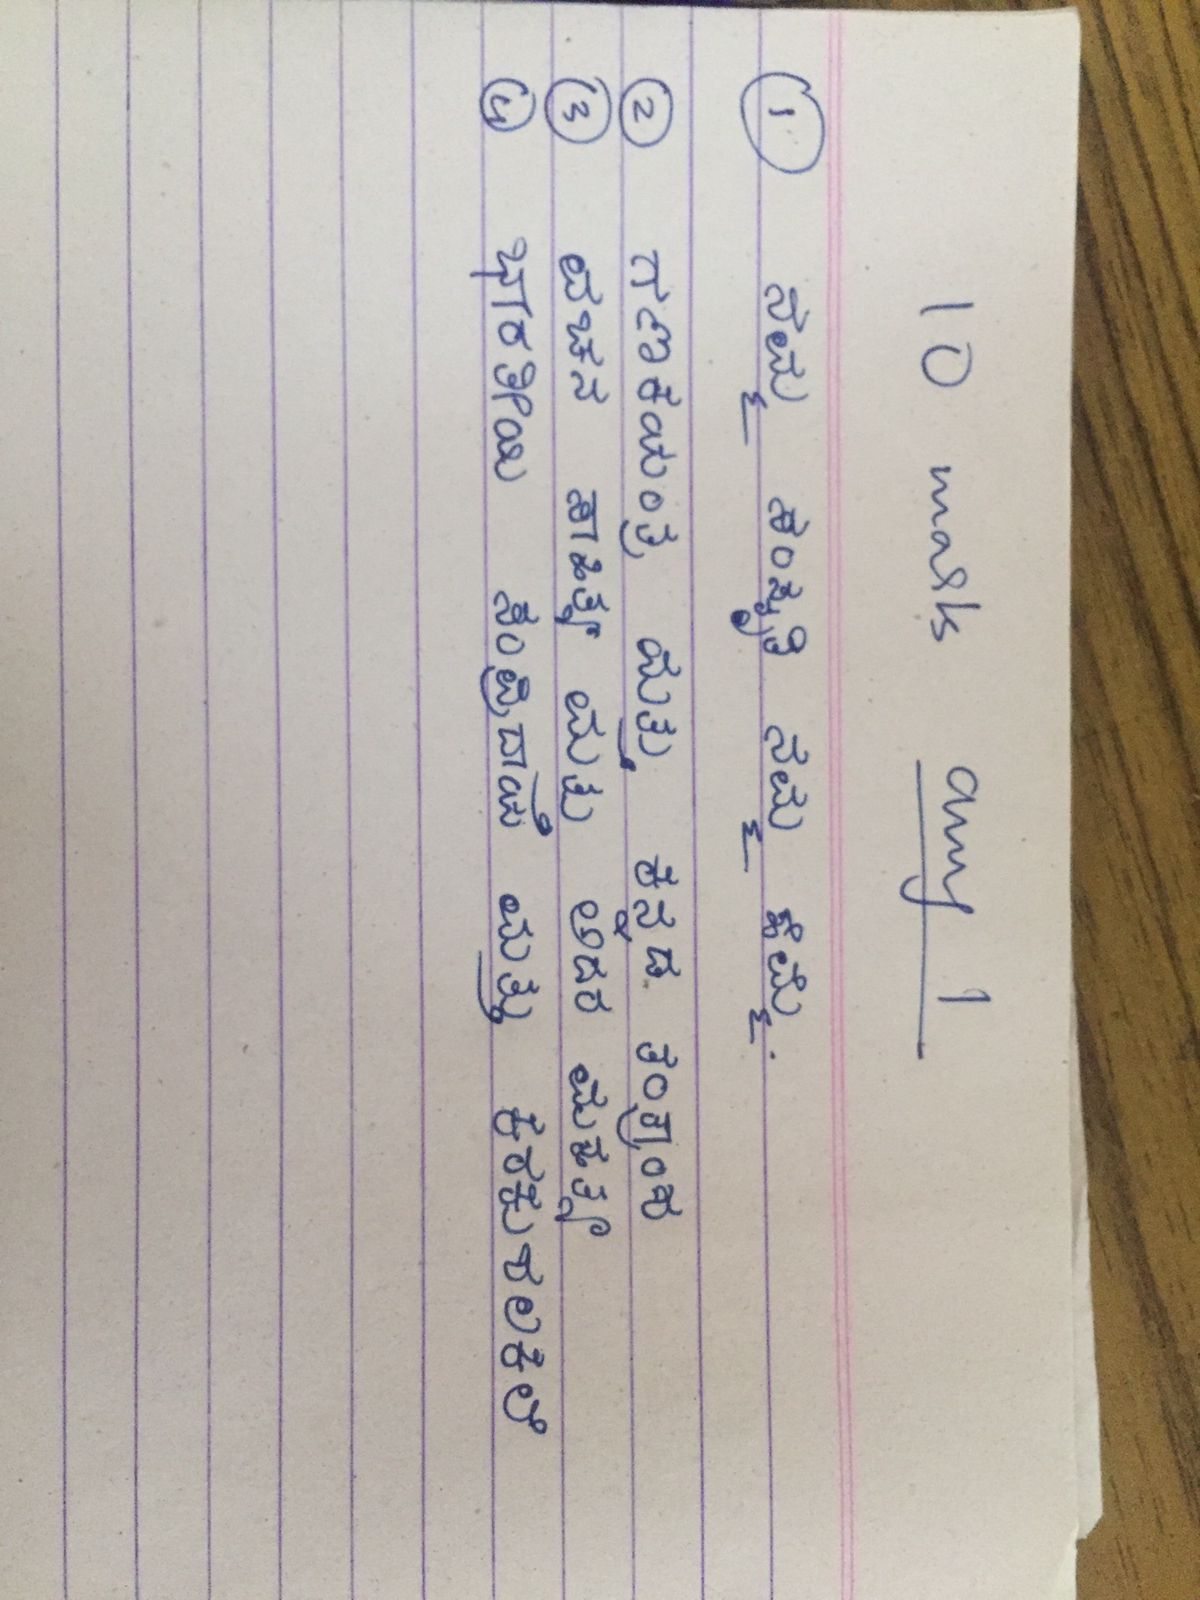 10 marks any 1
1 ನಮ್ಮ ಸಂಸ್ಕೃತಿ ನಮ್ಮ ಹೆಮ್ಮೆ.
2 ಗಣಕಯಂತ್ರ ಮತ್ತು ಕನ್ನಡ ತಂತ್ರಾಂಶ
3 ವಚನ ಸಾಹಿತ್ಯ ಮತ್ತು ಅದರ ಮಹತ್ವ
4 ಭಾರತೀಯ ಸಂಪ್ರದಾಯ ಮತ್ತು ಕರಕುಶಲಕಲೆ